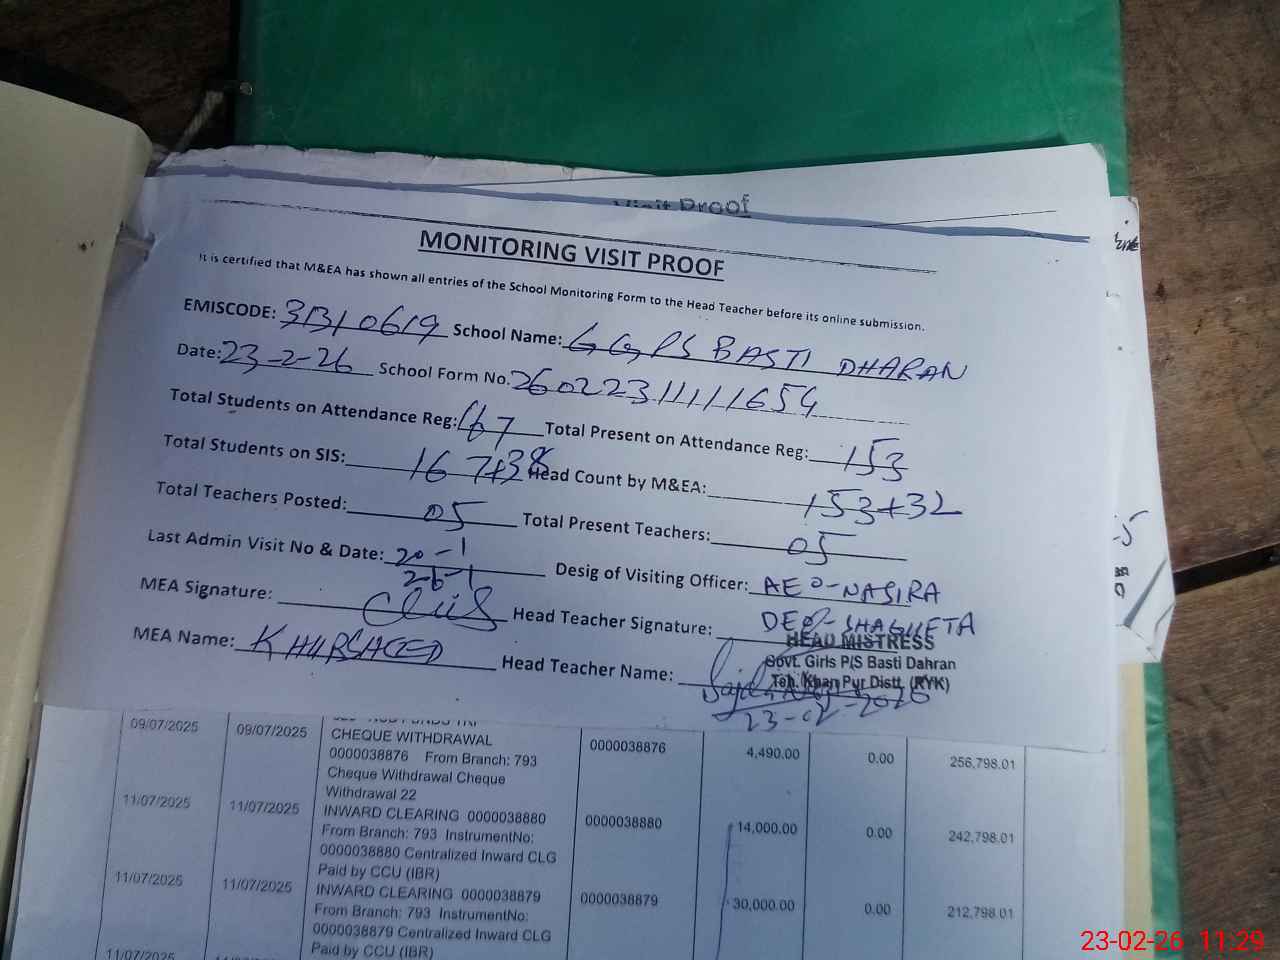 Visit Proof
MONITORING VISIT PROOF
It is certified that M&EA has shown all entries of the School Monitoring Form to the Head Teacher before its online submission.
EMISCODE: 31310619 School Name: GGPS BASTI DHARAN
Date: 23-2-26 School Form No. 26022311111654
Total Students on Attendance Reg: 167 Total Present on Attendance Reg: 153
Total Students on SIS: 167+38 Head Count by M&EA: 153+32
Total Teachers Posted: 05 Total Present Teachers: 05
Last Admin Visit No & Date: 20-1 Desig of Visiting Officer: AEO-NASIRA
26-1 DEO-SHAGUFTA
MEA Signature: Head Teacher Signature:
HEAD MISTRESS
Govt. Girls P/S Basti Dahran
Teh. Khan Pur Distt. (RYK)
MEA Name: KHURSHEED Head Teacher Name:
23-02-2026
09/07/2025 09/07/2025 CHEQUE WITHDRAWAL 0000038876 4,490.00 0.00 256,798.01
0000038876 From Branch: 793
Cheque Withdrawal Cheque
Withdrawal 22
11/07/2025 11/07/2025 INWARD CLEARING 0000038880 0000038880 14,000.00 0.00 242,798.01
From Branch: 793 InstrumentNo:
0000038880 Centralized Inward CLG
Paid by CCU (IBR)
11/07/2025 11/07/2025 INWARD CLEARING 0000038879 0000038879 30,000.00 0.00 212,798.01
From Branch: 793 InstrumentNo:
0000038879 Centralized Inward CLG
Paid by CCU (IBR)
11/07/2025
23-02-26 11:29